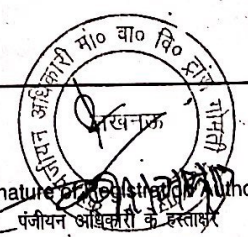 पंजीयन अधिकारी मो० वा० वि० ट्रांस गोमती
लखनऊ
nature of Registration Autho
पंजीयन अधिकारी के हस्ताक्षर